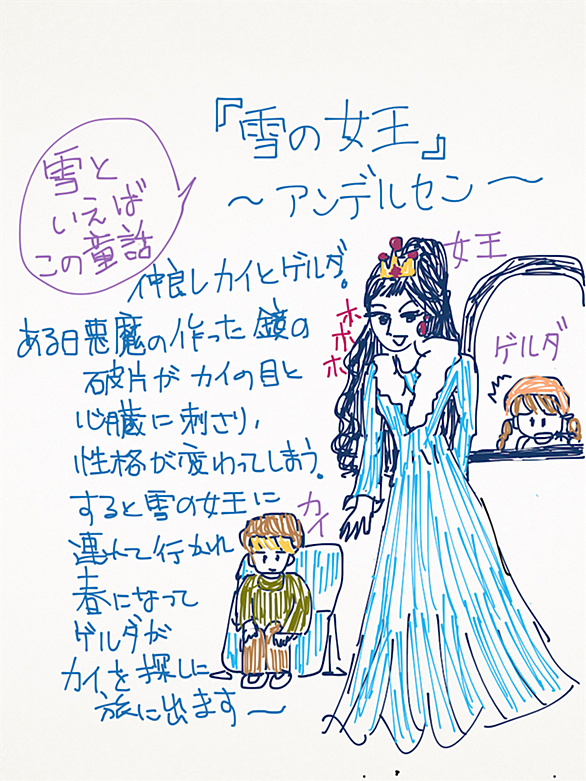 『雪の女王』
〜アンデルセン〜
雪と
いえば
この童話
仲良しカイとゲルダ。
ある日悪魔の作った鏡の
破片がカイの目と
心臓に刺さり、
性格が変わってしまう。
すると雪の女王に
連れて行かれ
春になって
ゲルダが
カイを探しに
旅に出ます〜
女王
ホホホ
ゲルダ
カイ